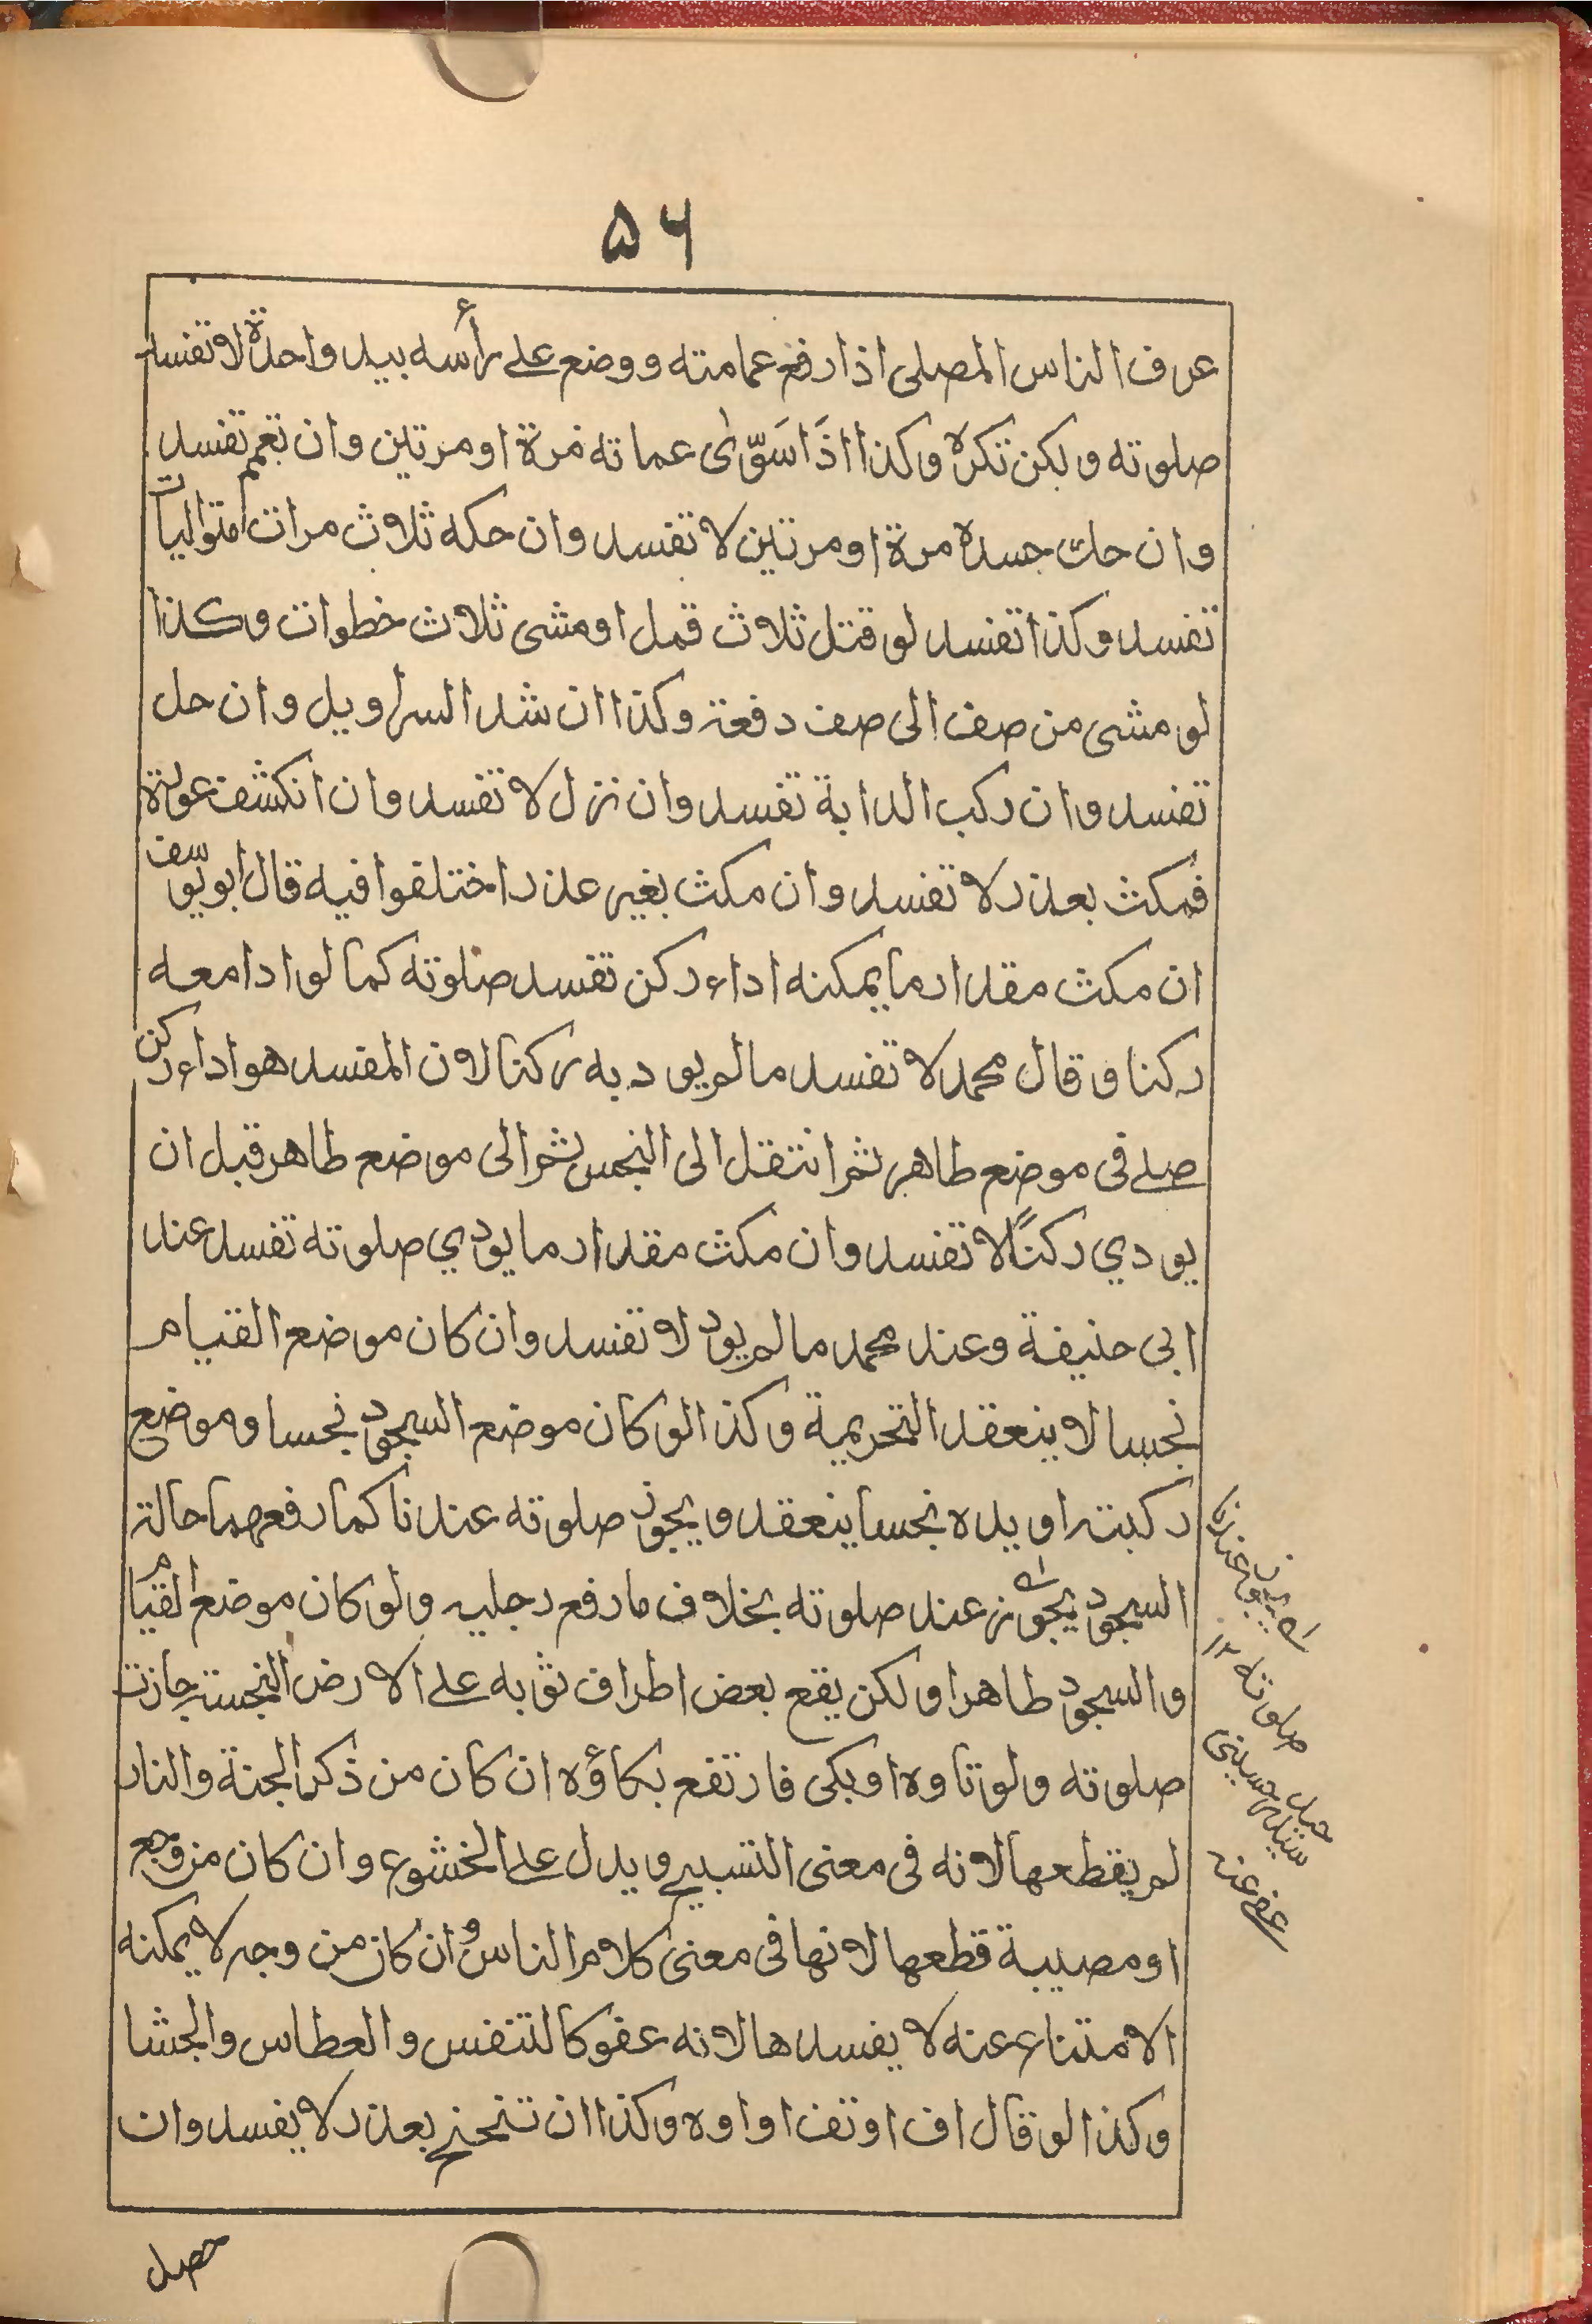 ۵۶
عرف الناس المصلى اذا رفع عمامته ووضع على رأسه بيد واحدة لا تفسد
صلوته ولكن تكره وكذا اذَا سَوّٰى عماته مرة او مرتين وان تعمم تفسد
وان حك جسده مرة او مرتين لا تفسد وان حكه ثلاث مرات متواليات
تفسد وكذا تفسد لو قتل ثلاث قمل او مشى ثلاث خطوات وكذا
لو مشى من صف الى صف دفعة وكذا ان شد السراويل وان حل
تفسد وان ركب الدابة تفسد وان نزل لا تفسد وان انكشف عورته
فمكث بعذر لا تفسد وان مكث بغير عذر اختلفوا فيه قال ابو يوسف
ان مكث مقدار ما يمكنه اداء ركن تفسد صلوته كما لو ادا معه
ركنا وقال محمد لا تفسد ما لم يود به ركنا لان المفسد هو اداء ركن
صلى فى موضع طاهر ثم انتقل الى النجس ثم الى موضع طاهر قبل ان
يودي ركنًا لا تفسد وان مكث مقدار ما يودي صلوته تفسد عند
ابى حنيفة وعند محمد ما لم يود لا تفسد وان كان موضع القيام
نجسا لا ينعقد التحريمة وكذا لو كان موضع السجود نجسا وموضع
ركبته او يده نجسا ينعقد ويجوز صلوته عندنا كما رفعهما حالة
السجود يجوز عند صلوته بخلاف ما رفع رجليه ولو كان موضع القيام
والسجود طاهرا ولكن يقع بعض اطراف ثوبه على الارض النجسة جازت
صلوته ولو تاوه او بكى فارتفع بكاؤه ان كان من ذكر الجنة والنار
لم يقطعها لانه فى معنى التسبيح ويدل على الخشوع وان كان من وجع
او مصيبة قطعها لانها فى معنى كلام الناس وان كان من وجه لا يمكنه
الامتناع عنه لا يفسدها لانه عفو كالتنفس والعطاس والجشا
وكذا لو قال اف او تف او اوه وكذا ان تنحنح بعذر لا يفسد وان
صلوته ١٢
عفى عنه
حصل